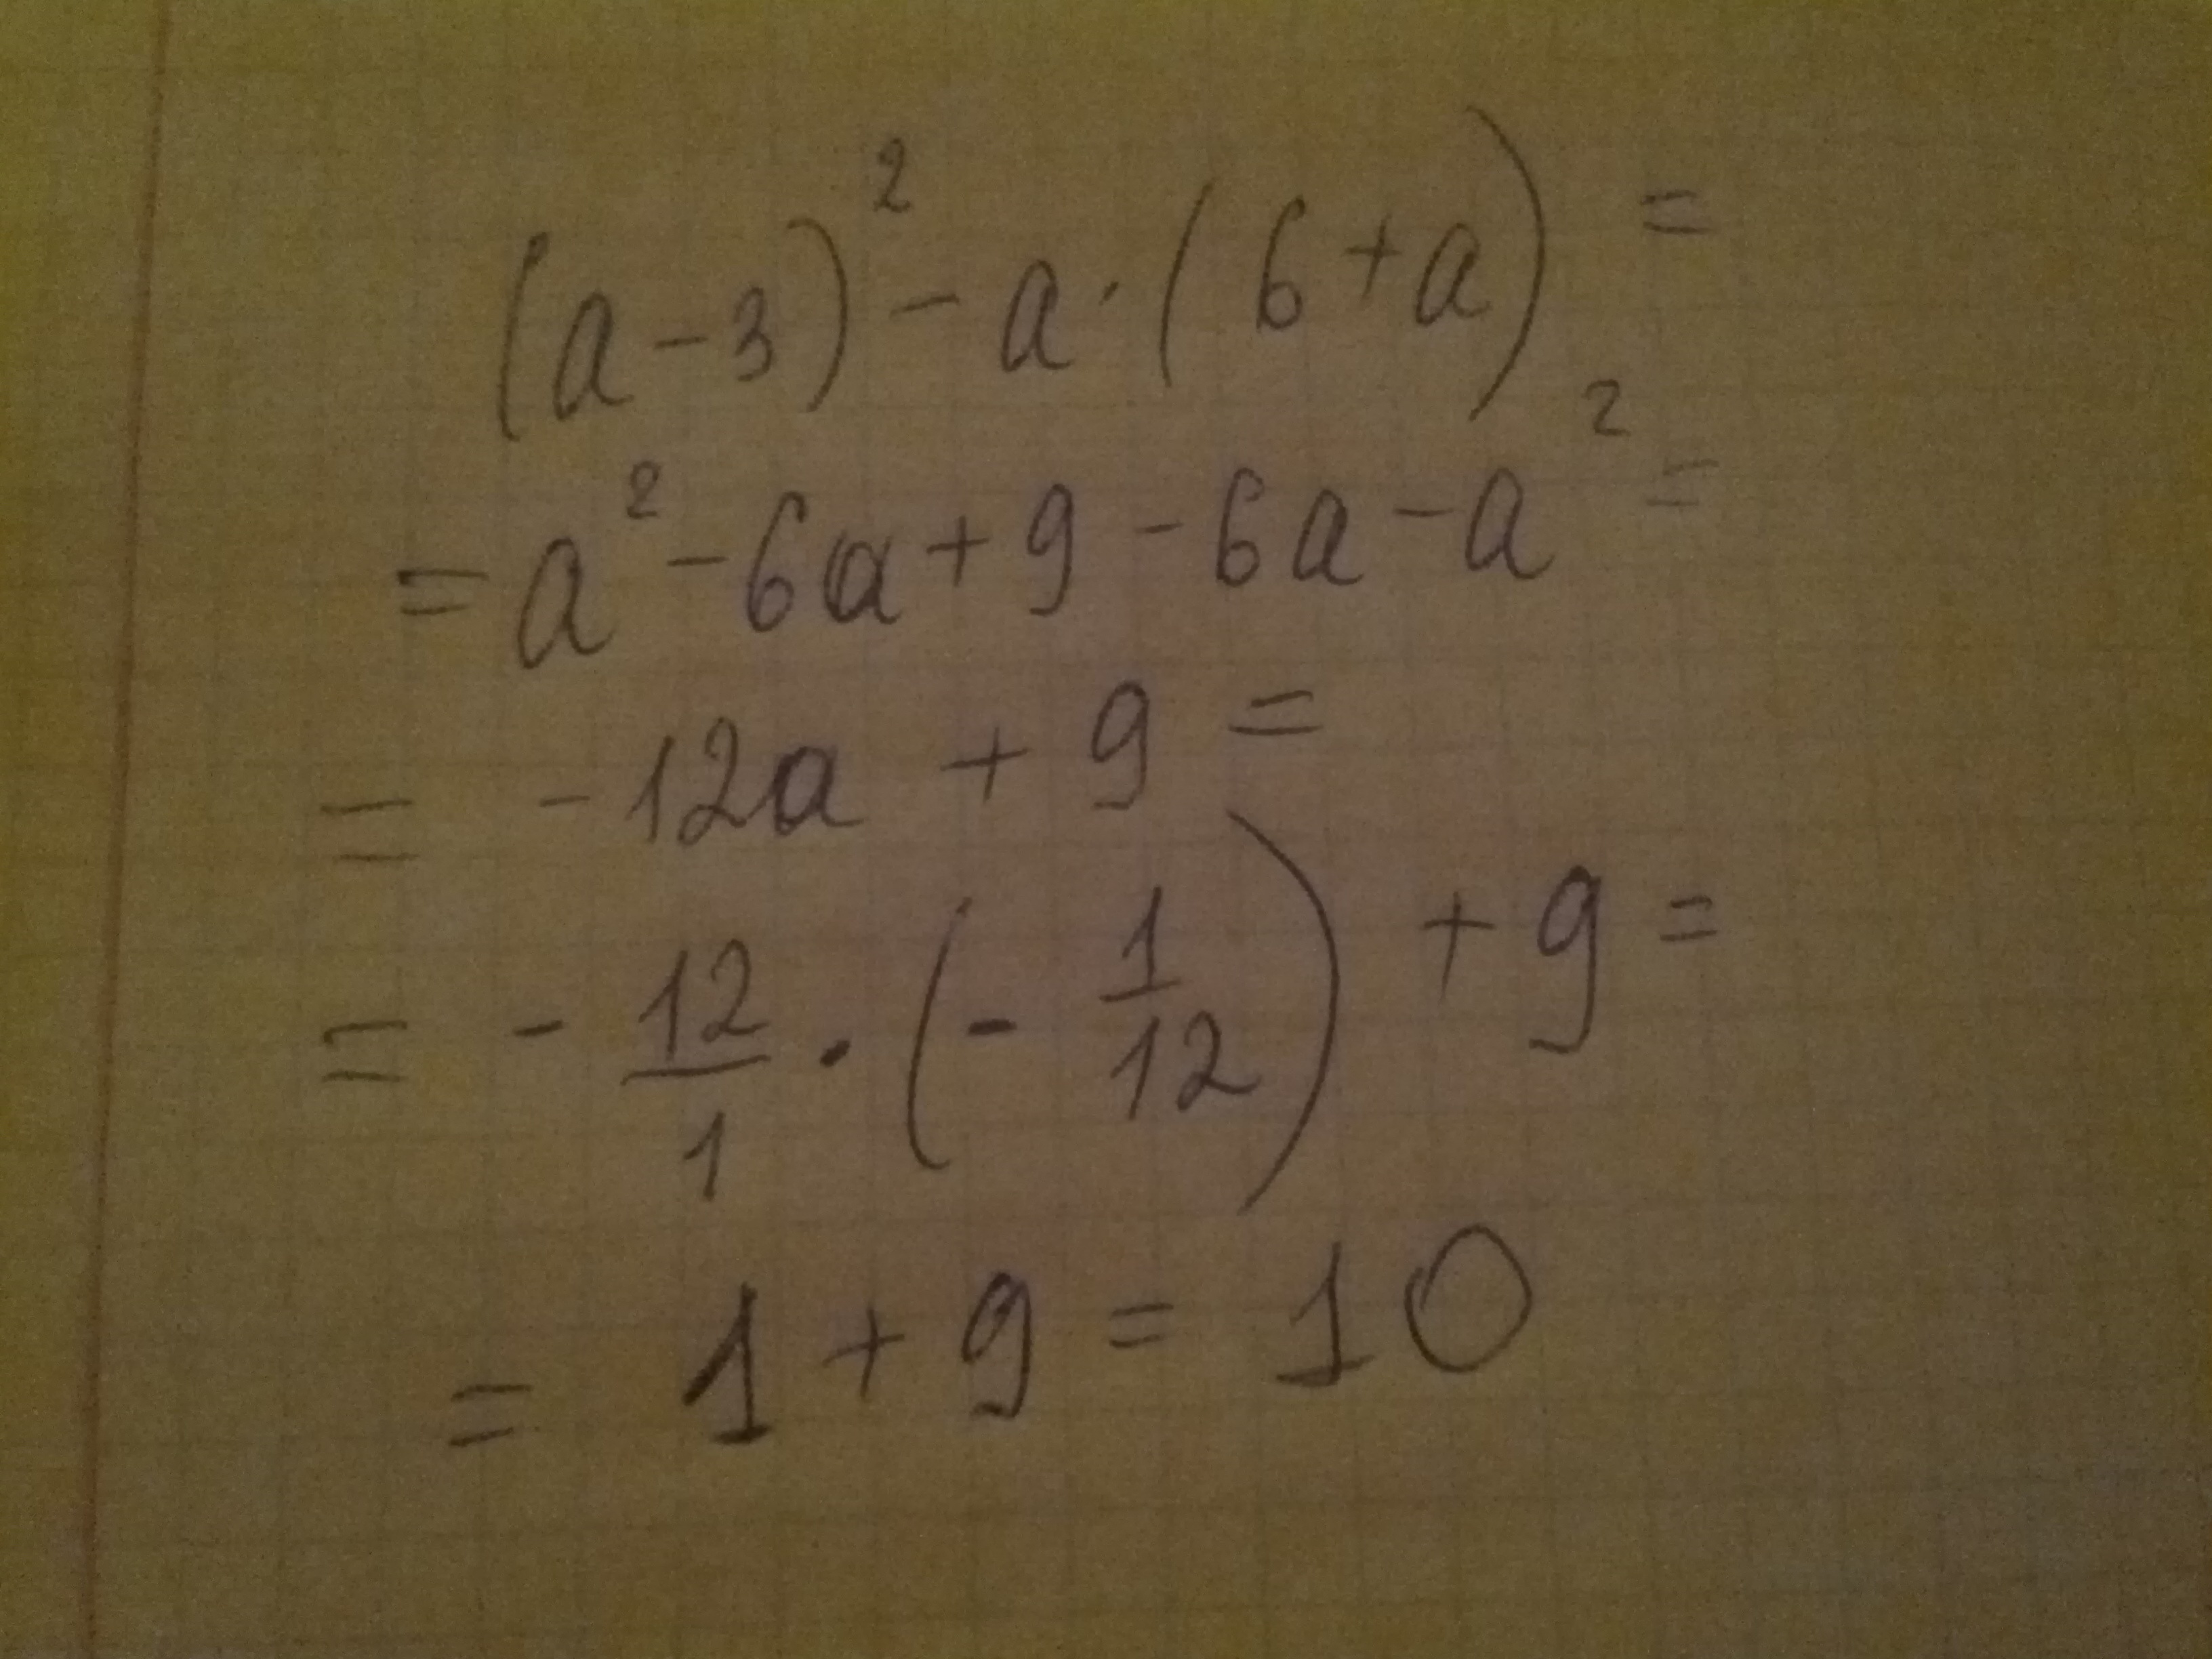 (a-3)² - a·(6+a) =
= a² - 6a + 9 - 6a - a² =
= -12a + 9 =
= - 12/1 · (- 1/12) + 9 =
= 1 + 9 = 10